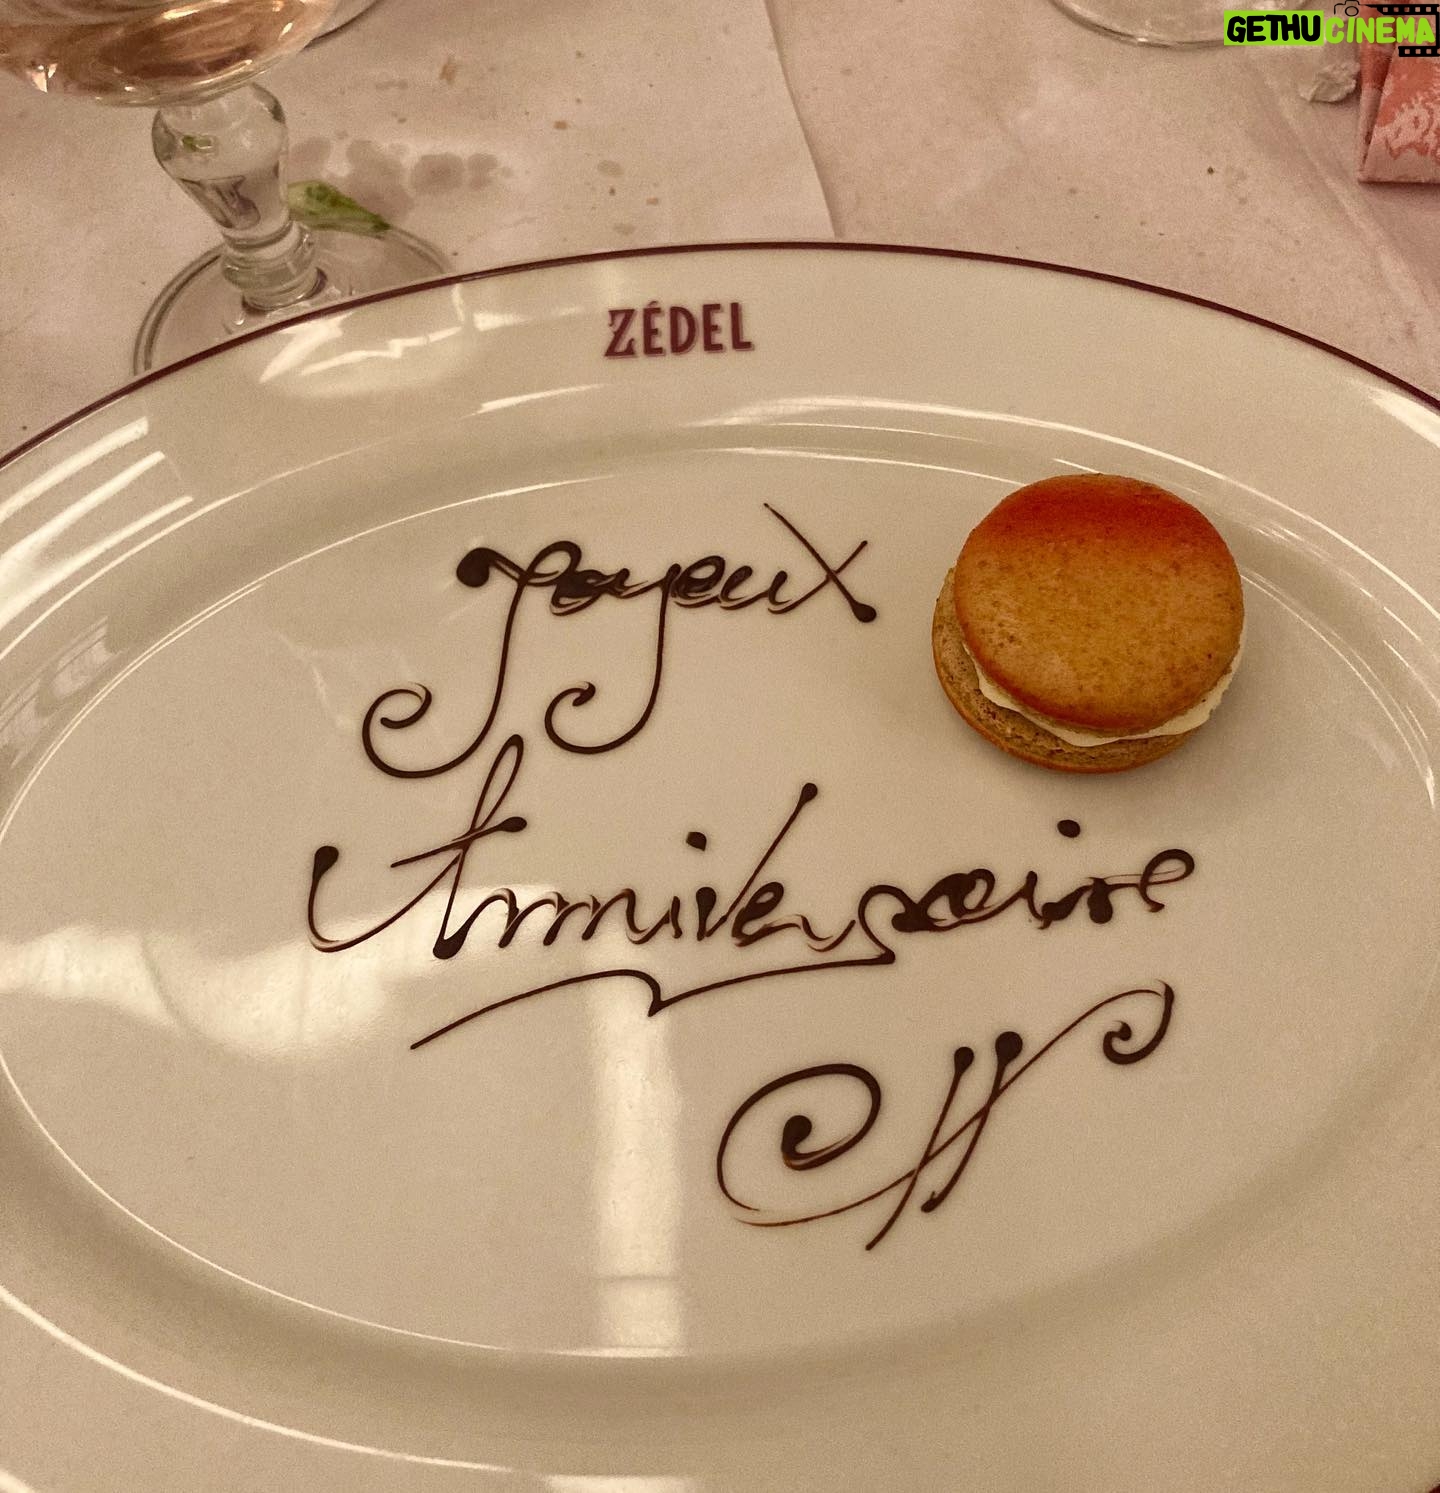 GETHU CINEMA
ZÉDEL
Joyeux
Anniversaire